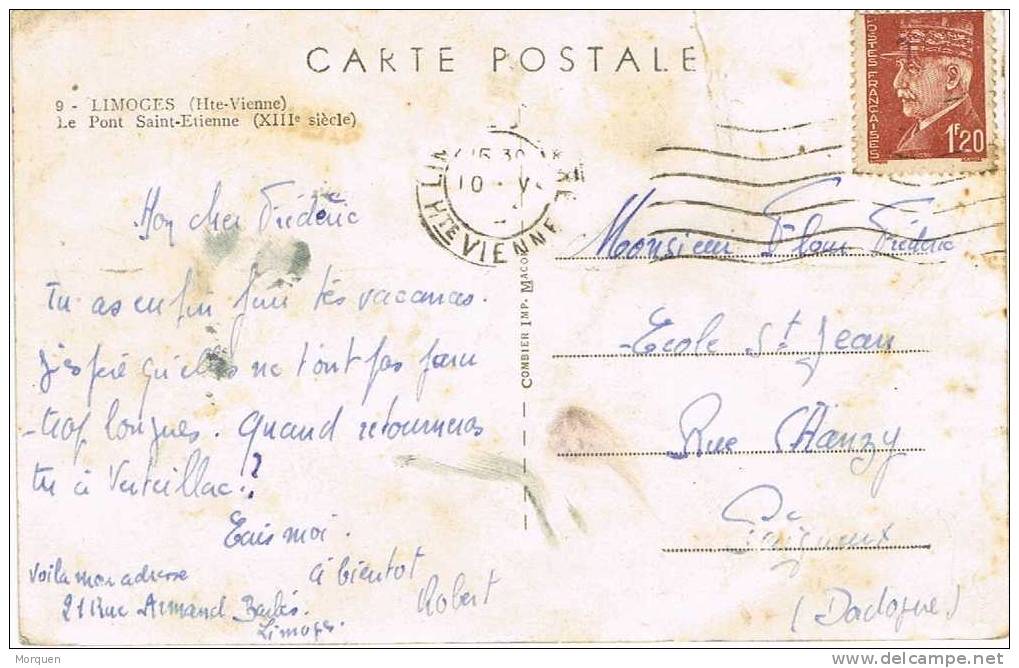 CARTE POSTALE
9 - LIMOGES (Hte-Vienne)
Le Pont Saint-Etienne (XIIIe siècle)
POSTES FRANÇAISES
1F20
10 V
HTE VIENNE
COMBIER IMP. MACON
Mon cher Frédéric
tu as enfin fini tes vacances.
j'espère qu'elles ne t'ont pas paru
trop longues. Quand retourneras
tu à Verteillac.?
Ecris moi.
à bientot
Robert
Voila mon adresse
21 Rue Armand Barbès.
Limoges.
Monsieur Frédéric
Ecole St Jean
Rue Chanzy
Périgueux
(Dadogne)
Morquen
delcampe.net